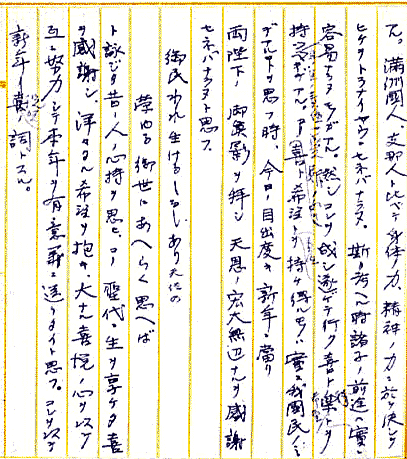 ル。満洲國人、支那人ト比ベテ身体ノ力、精神ノ力ニ於テ決シテ
ヒケヲトラナイヤウニセネバナラヌ。斯ク考ヘル時諸子ノ前途ハ實ニ
容易ナラヌモノガアル。然シコレヲ成シ遂ゲテ行ク喜ト楽トヲ
持ツ
喜ト希望トヲ持チ得ルモノハ實ニ我國民
デアルト思フ時、今日ノ目出度キ新年ニ當リ
両陛下ノ御真影ヲ拝シ天恩ノ宏大無辺ナルヲ感謝
セネバナラヌト思フ。
御民われ生けるしるしあり天地の
栄ゆる御世にあへらく思へば
ト詠ジタ昔ノ人ノ心持ヲ思ヒ、コノ聖代ニ生ヲ享ケタ喜
ヲ感謝シ、洋々タル希望ヲ抱キ、大ナル喜悦ノ心ヲ以テ
互ニ努力シテ本年ヲ有意義ニ送リタイト思フ。コレヲ以テ
新年ノ喜ノ詞トスル。